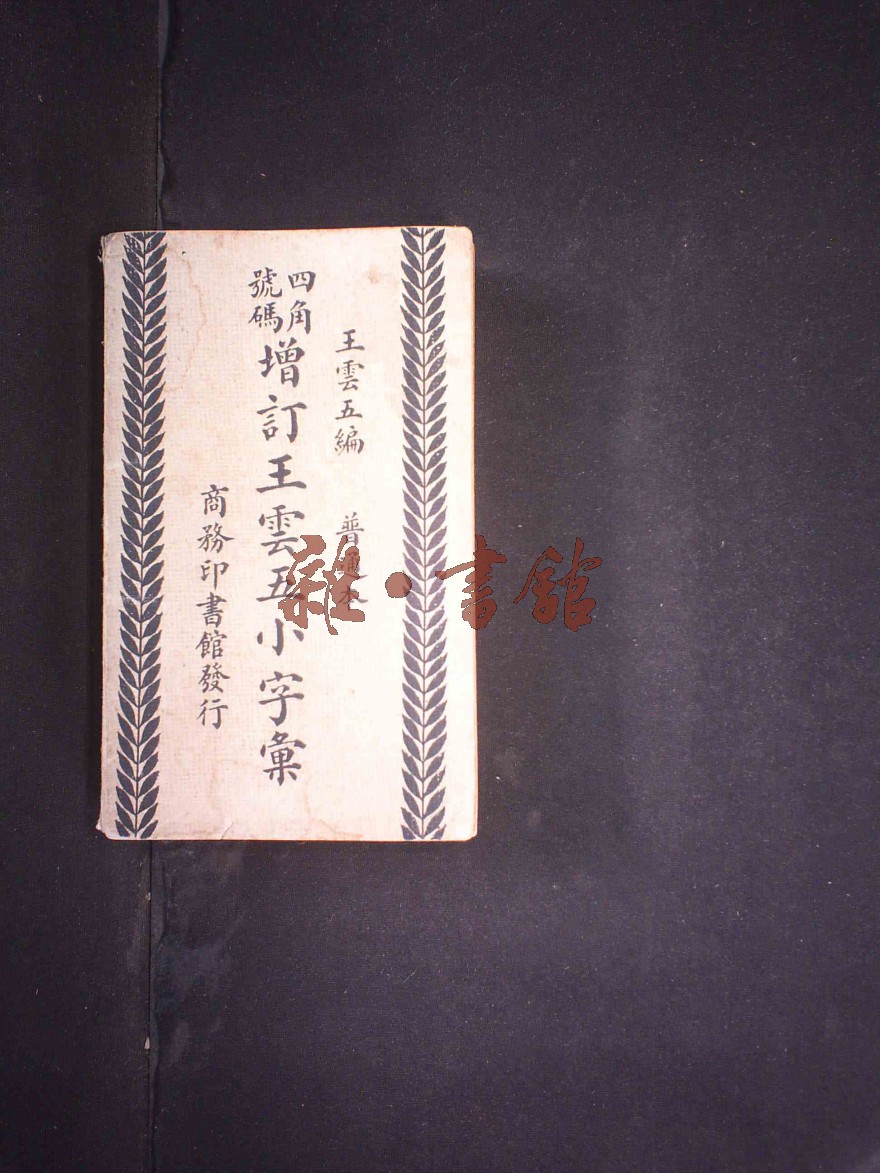 王雲五編 普通本
四角號碼
增訂王雲五小字彙
商務印書館發行
雜·書館